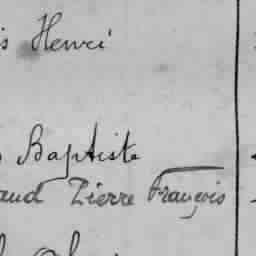 s Henri
Baptiste
aud Pierre François